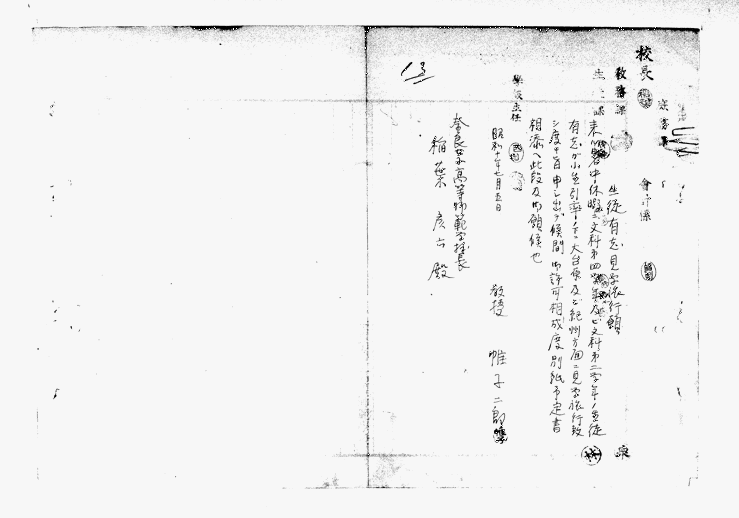 校長
教務課
会計係
生徒有志見学旅行願
来ル暑中休暇ニ文科第四学年及ビ文科第二学年ノ生徒
有志ガ小生引率ノ下ニ大台原及ビ紀州方面ニ見学旅行致
シ度キ旨申シ出デ候間御許可相成度別紙予定書
相添ヘ此段及御願候也
学級主任
昭和十年七月五日
教授
二郎
奈良女子高等師範学校長
稲葉彦六殿
13